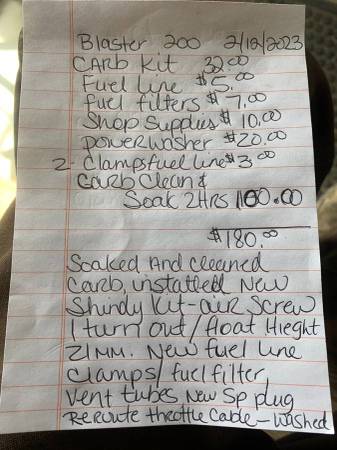 Blaster 200 2/12/2023
CARB Kit 32.00
Fuel line $5.00
fuel filters $7.00
Shop Supplies $10.00
powerwasher $20.00
2- Clamps fuel line $3.00
Carb Clean &
Soak 2HRS 100.00
$180.00
Soaked And Cleaned
Carb, installed New
Shindy Kit-air Screw
1 turn out/float Hieght
21MM. New fuel line
Clamps/fuel filter,
Vent tubes New Sp plug
Reroute throttle Cable-Washed